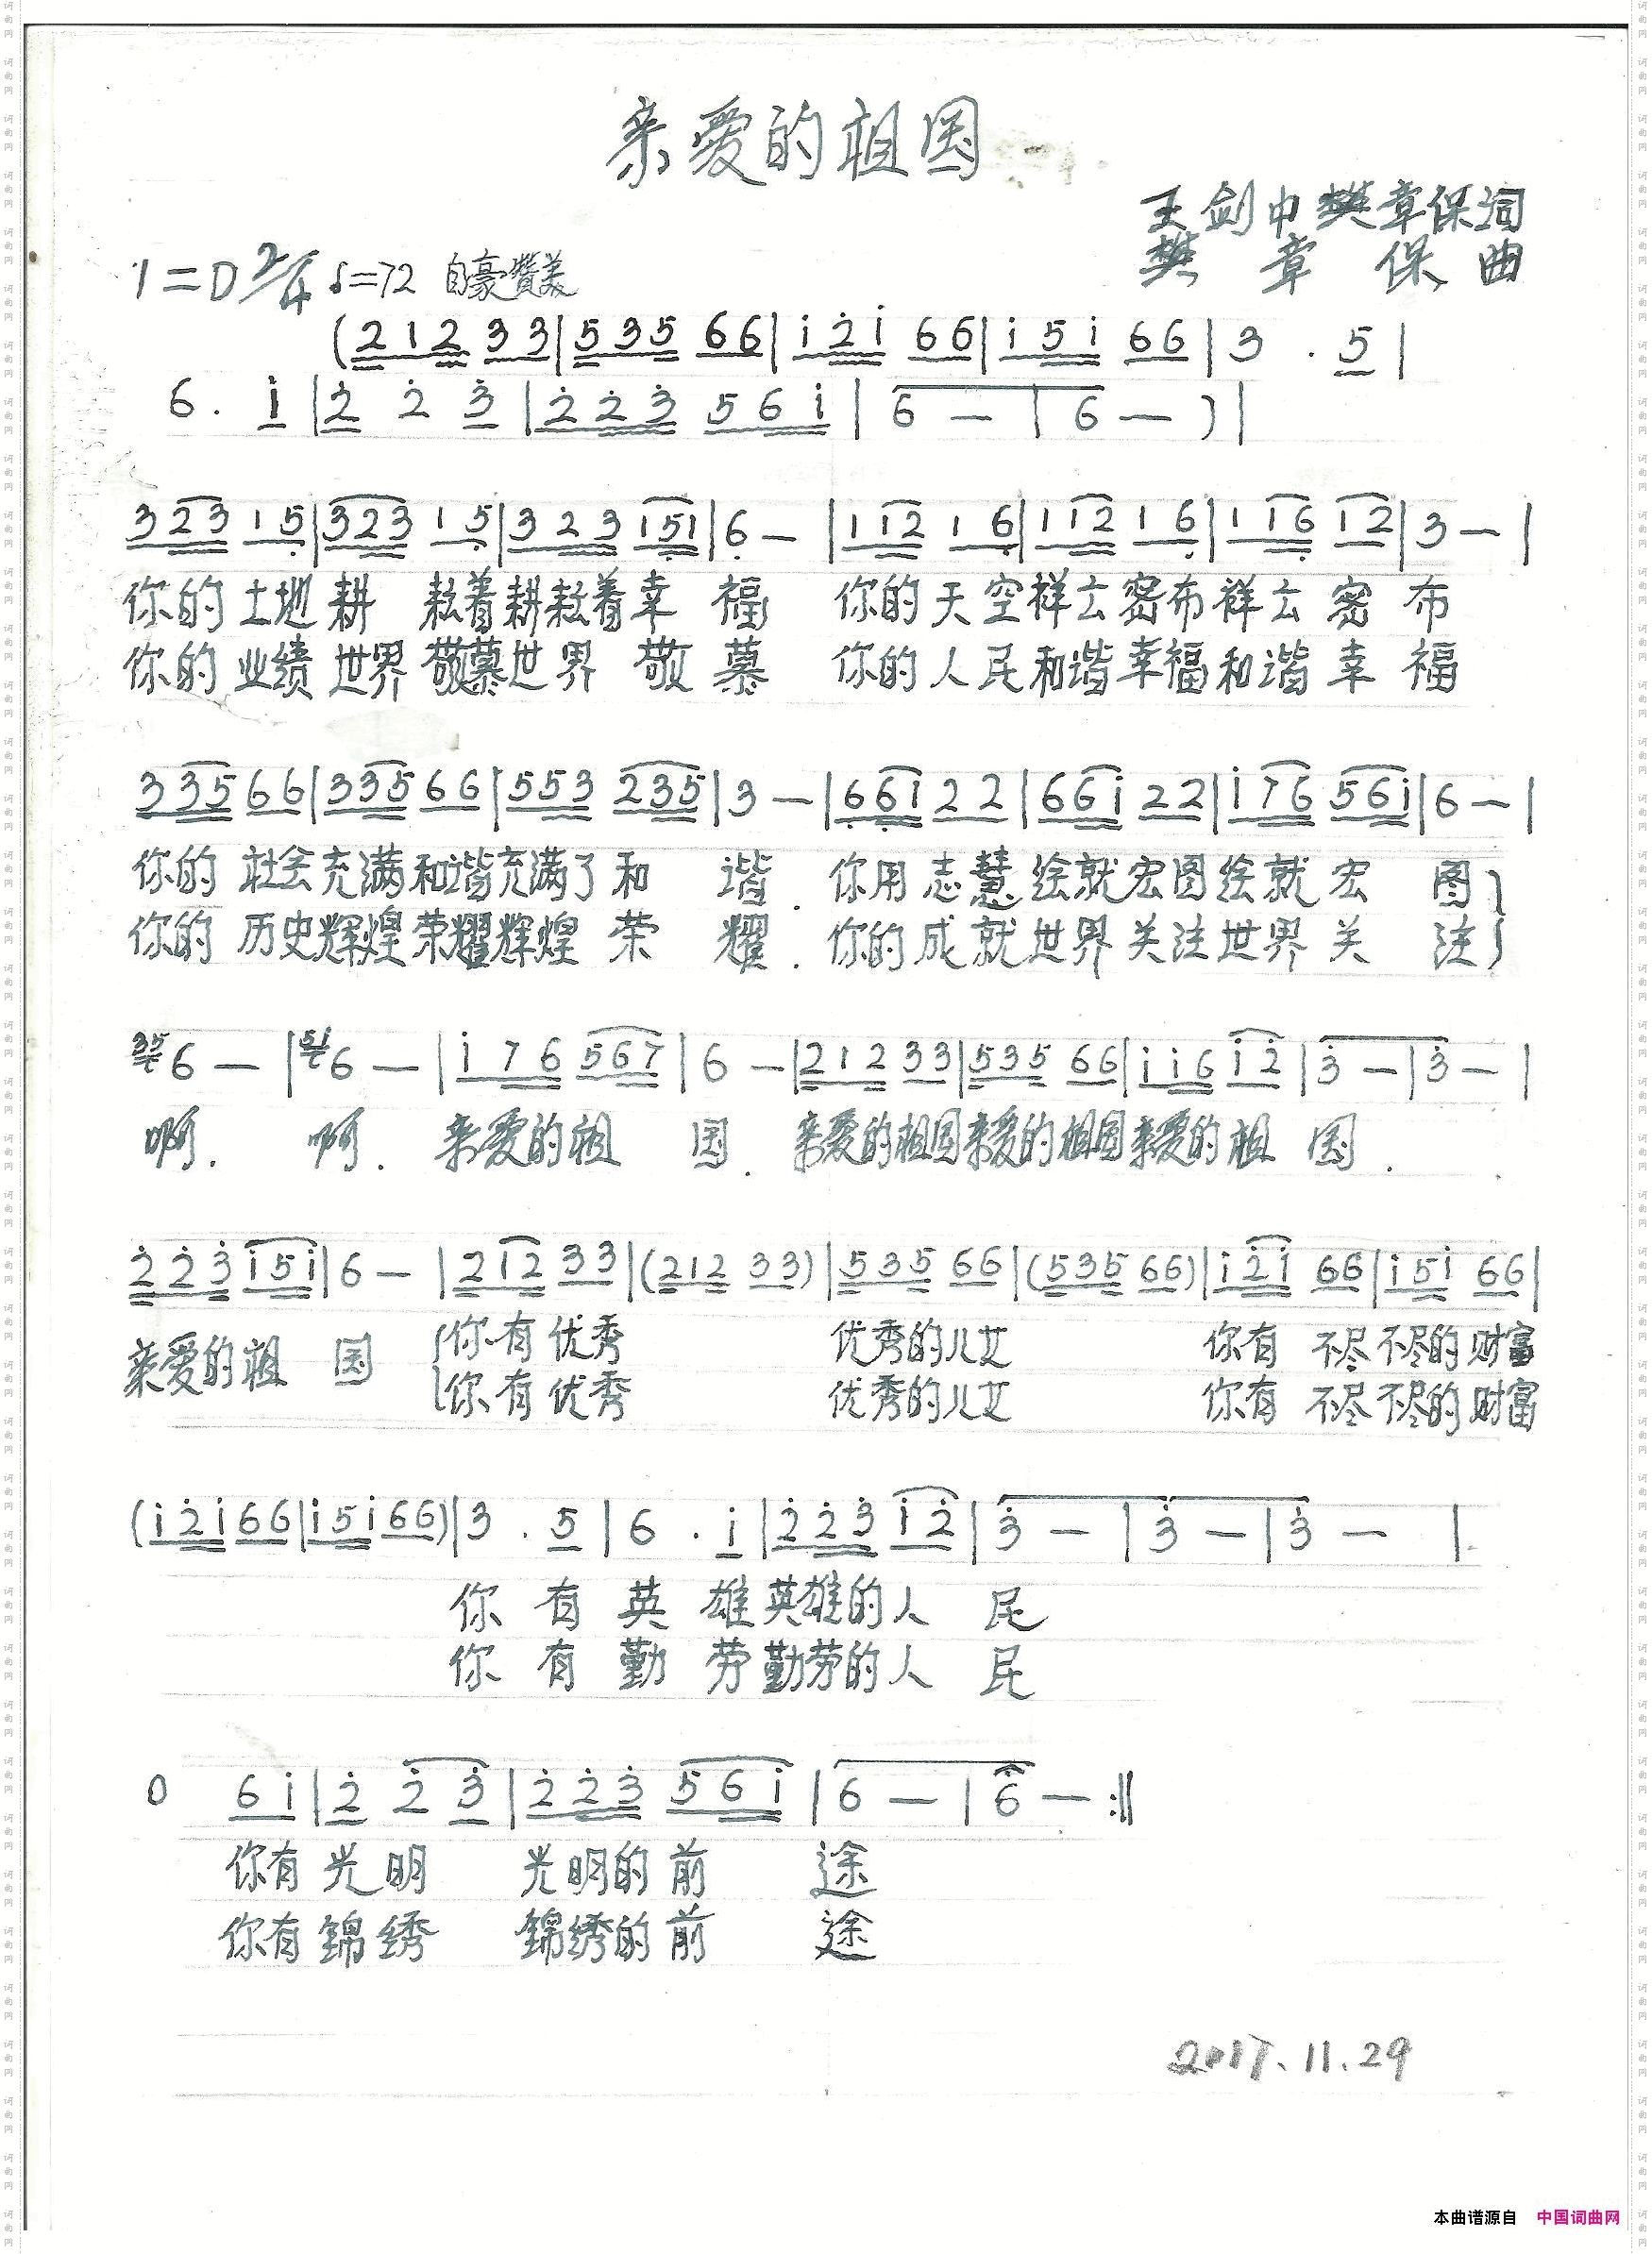 亲爱的祖国
王剑中 樊章保词
樊章保曲
1=D 2/4 ♩=72 自豪赞美
(2 1 2 3 3|5 3 5 6 6|i 2̇ i 6 6|i 5 i 6 6|3 . 5|
6 . i|2̇ 2̇ 3̇|2̇ 2̇ 3̇ 5 6 i|6 —|6 —)|
3 2 3 1 5̣|3 2 3 1 5̣|3 2 3 1 5̣ 1|6̣ —|1 1 2 1 6̣|1 1 2 1 6̣|1 1 6̣ 1 2|3 —|
你的土地耕 耘着耕耘着幸 福 你的天空祥云密布祥云密布
你的业绩世界敬慕世界敬慕 你的人民和谐幸福和谐幸福
3 3 5 6 6|3 3 5 6 6|5 5 3 2 3 5|3 —|6̣ 6̣ i 2 2|6 6 i 2 2|i 7 6 5 6 i|6 —|
你的社会充满和谐充满了和 谐.你用志慧绘就宏图绘就宏 图}
你的历史辉煌荣耀辉煌荣 耀.你的成就世界关注世界关 注}
35 6 —|51 6 —|i 7 6 5 6 7|6 —|2 1 2 3 3|5 3 5 6 6|i i 6 i 2̇|3̇ —|3̇ —|
啊. 啊. 亲爱的祖 国.亲爱的祖国亲爱的祖国亲爱的祖 国.
2̇ 2̇ 3̇ i 5 i|6 —|2 1 2 3 3|(2 1 2 3 3)|5 3 5 6 6|(5 3 5 6 6)|i 2̇ i 6 6|i 5 i 6 6|
亲爱的祖 国
{你有优秀 优秀的儿女 你有不尽不尽的财富
{你有优秀 优秀的儿女 你有不尽不尽的财富
(i 2̇ i 6 6|i 5 i 6 6)|3 . 5|6 . i|2̇ 2̇ 3̇ i 2̇|3̇ —|3̇ —|3̇ —|
你有英雄英雄的人 民
你有勤劳勤劳的人 民
0 6 i|2̇ 2̇ 3̇|2̇ 2̇ 3̇ 5 6 i|6 —|6 —:‖
你有光明 光明的前 途
你有锦绣 锦绣的前 途
2017.11.29
本曲谱源自 中国词曲网